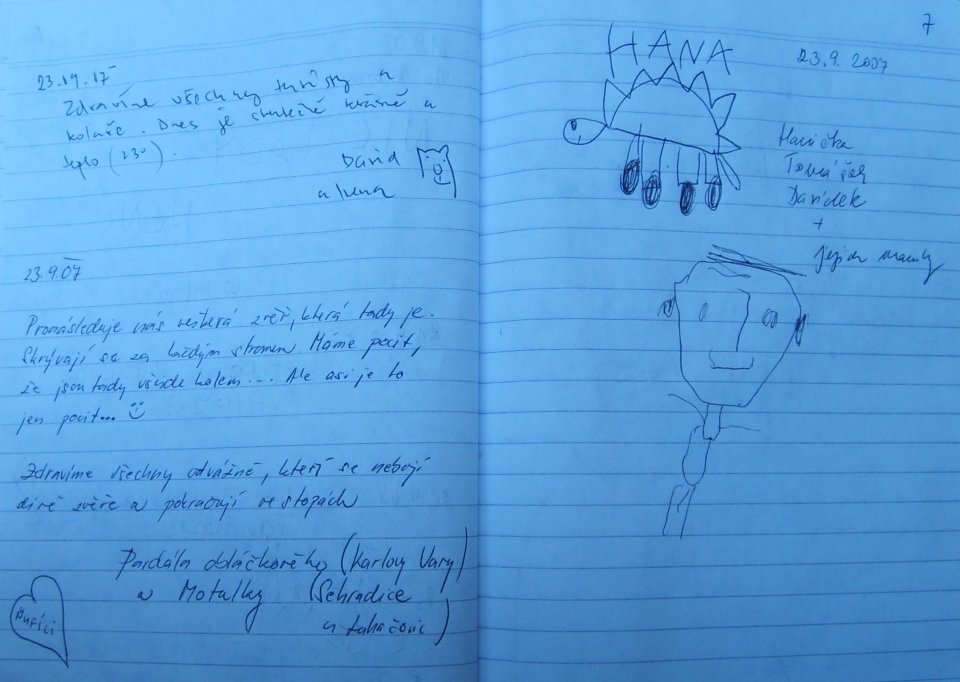 23.9.07
Zdravíme všechny turisty a
kolaře. Dnes je skutečně krásně a
teplo (23°).
David
a
23.9.07
Pronásleduje nás veškerá zvěř, která tady je.
Skrývají se za každým stromem Máme pocit,
že jsou tady všude kolem... Ale asi je to
jen pocit...
Zdravíme všechny odvážné, kteří se nebojí
divé zvěře a pokračují ve stopách
Pardála obláčkového (Karlovy Vary)
a Motalky (Sehradice
u Luhačovic)
7
HANA
23.9.2007
Hanička
Tomášek
Davídek
+
jejich mamky